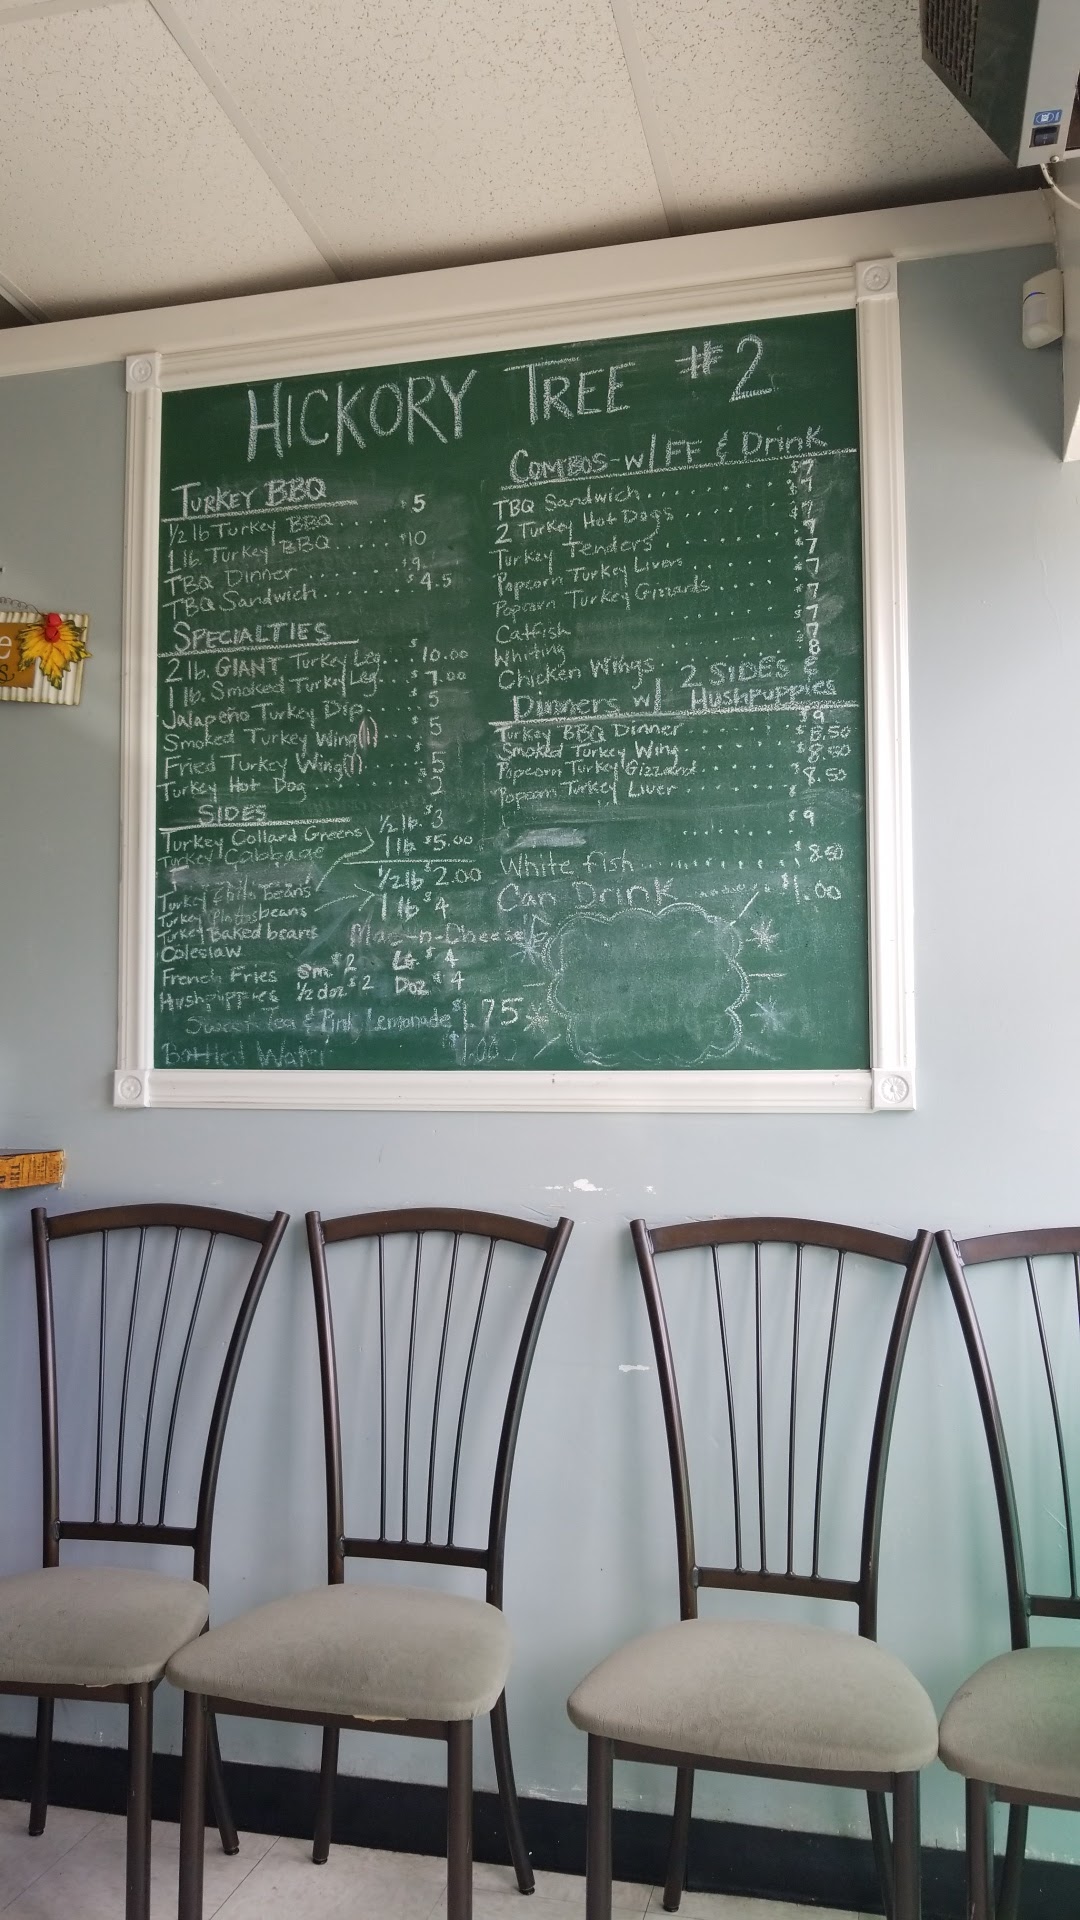 HICKORY TREE #2
TURKEY BBQ
1/2 lb Turkey BBQ..... $5
1 lb. Turkey BBQ...... $10
TBQ Dinner........ $9
TBQ Sandwich......... $4.5
SPECIALTIES
2 lb. GIANT Turkey Leg... $10.00
1 lb. Smoked Turkey Leg... $7.00
Jalapeño Turkey Dip..... $5
Smoked Turkey Wing(1).... $5
Fried Turkey Wing(1)..... $5
Turkey Hot Dog........ $2
SIDES
Turkey Collard Greens
Turkey Cabbage
1/2 lb. $3
1 lb. $5.00
Turkey Chili beans
Turkey Pintosbeans
Turkey Baked beans
Coleslaw
1/2 lb $2.00
1 lb $4
Mac-n-Cheese
French Fries Sm. $2 LG. $4
Hushpuppies 1/2 doz $2 Doz $4
Sweet Tea & Pink Lemonade $1.75
Bottled Water $1.00
COMBOS - w/ FF & Drink
TBQ Sandwich........ $7
2 Turkey Hot Dogs........ $7
Turkey Tenders........ $7
Popcorn Turkey Livers........ 7
Popcorn Turkey Gizzards...... 7
Catfish ...... $7
Whiting ...... $7
Chicken Wings........ $8
Dinners w/ 2 SIDES & Hushpuppies
Turkey BBQ Dinner......... $9
Smoked Turkey Wing......... 8.50
Popcorn Turkey Gizzard........ 8.50
Popcorn Turkey Liver........ $8.50
...... $9
White fish............ $8.50
Can Drink ........ $1.00